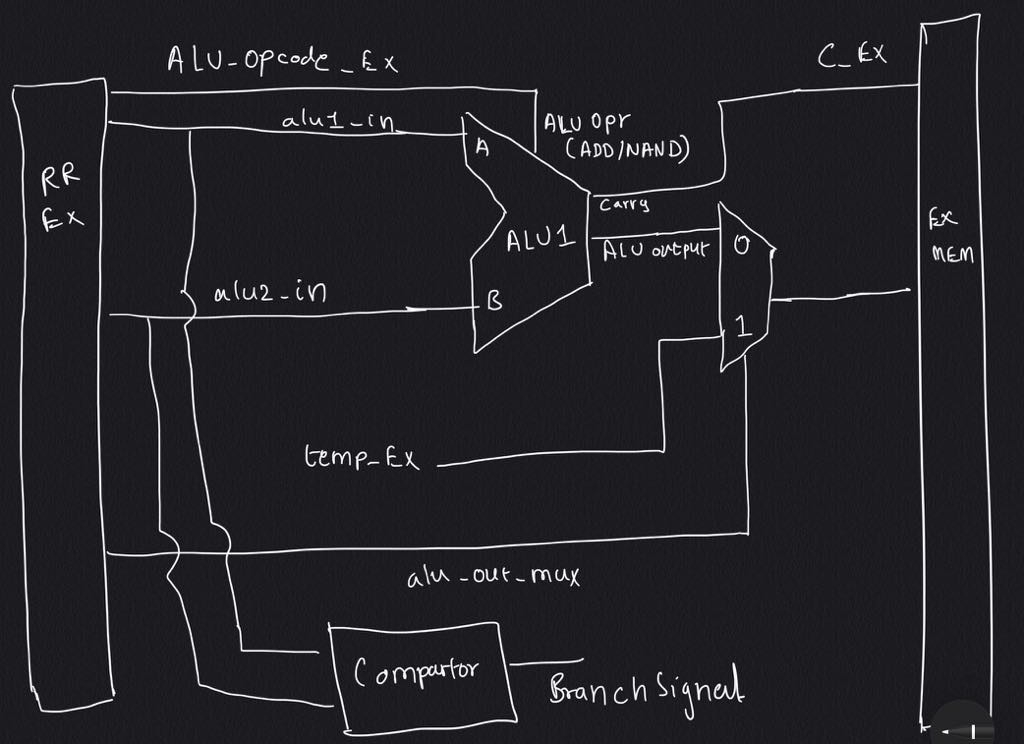 ALU-Opcode_Ex
C_Ex
alu1_in
ALU Opr
(ADD/NAND)
A
RR
Ex
Carry
ALU1
ALU output
0
Ex
MEM
alu2_in
B
1
temp_Ex
alu-out-mux
Compartor
Branch Signal